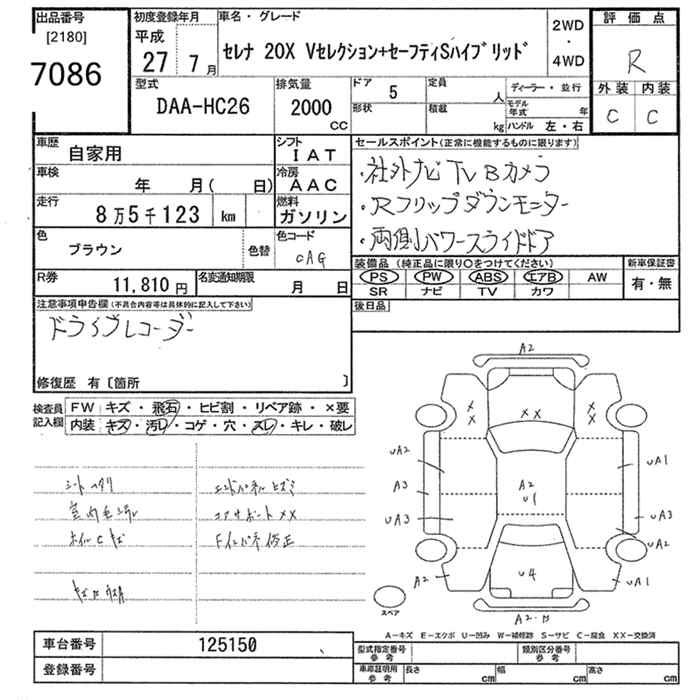 出品番号
[2180]
7086
初度登録年月
平成
27年7月
車名・グレード
セレナ 20X Vセレクション+セーフティSハイブリッド
2WD
・
4WD
評価点
R
外装 内装
C C
型式
DAA-HC26
排気量
2000
CC
ドア
5
形状
定員
人
積載
kg
ディーラー・並行
モデル年式 年
ハンドル 左・右
車歴
自家用
シフト
IAT
車検
年 月( 日)
冷房
AAC
走行
8万5千123 km
燃料
ガソリン
色
ブラウン
色替
色コード
CAG
R券
11,810円
名変通知期限
月 日
セールスポイント(正常に機能するものに限ります)
・社外ナビ TV Bカメラ
・Rフリップダウンモニター
・両側パワースライドドア
装備品(純正品に限り○をつけてください)
PS PW ABS エアB AW
SR ナビ TV カワ
新車保証書
有・無
後日品
注意事項申告欄(不具合内容等は具体的に記入して下さい)
ドライブレコーダー
修復歴 有〔箇所 〕
検査員記入欄
FW キズ・飛石・ヒビ割・リペア跡・×要
内装 キズ・汚レ・コゲ・穴・スレ・キレ・破レ
シートヘタリ
ホイルCキズ
エンドパネルヒズミ
コアサポートXX
Fインパネ修正
A2
X X
X X
X X
UA2
UA1
A3
A2
U1
UA3
UA3
UA2
A2
U4
UA1
スペア
A2-B
A-キズ E-エクボ U-凹み W-補修跡 S-サビ C-腐食 XX-交換済
車台番号
125150
登録番号
型式指定番号
参考
類別区分番号
参考
車庫証明用
参考
長さ cm
幅 cm
高さ cm